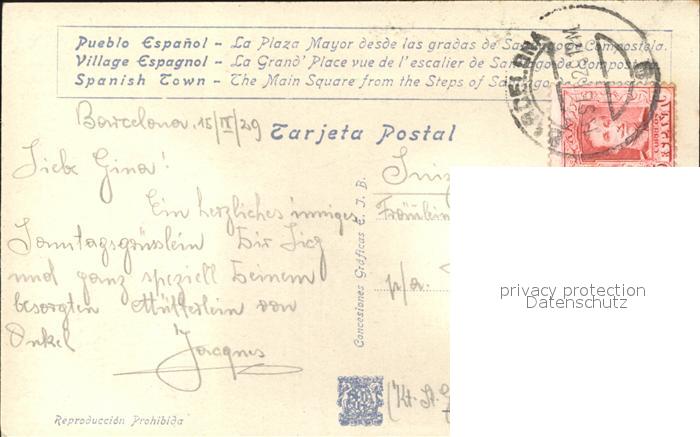 Pueblo Español – La Plaza Mayor desde las gradas de Santiago de Compostela.
Village Espagnol – La Grand' Place vue de l'escalier de Santiago de Compostela
Spanish Town – The Main Square from the Steps of Santiago
BARCELONA
Barcelona. 15/IX/29
Tarjeta Postal
Liebe Gina!
Ein herzliches inniges
Sonntagsgrüsslein Dir
und ganz speziell Deinem
besorgten Mütterlein von
Onkel
Jacques
Concesiones Gráficas C. I. B.
Fräulein
p/a.
(Kt. St. G
privacy protection
Datenschutz
Reproducción Prohibida